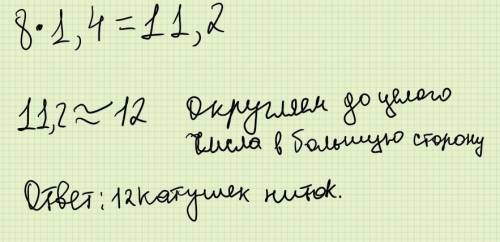 8·1,4=11,2
11,2≈12 Округляем до целого
числа в большую сторону
Ответ: 12 катушек ниток.